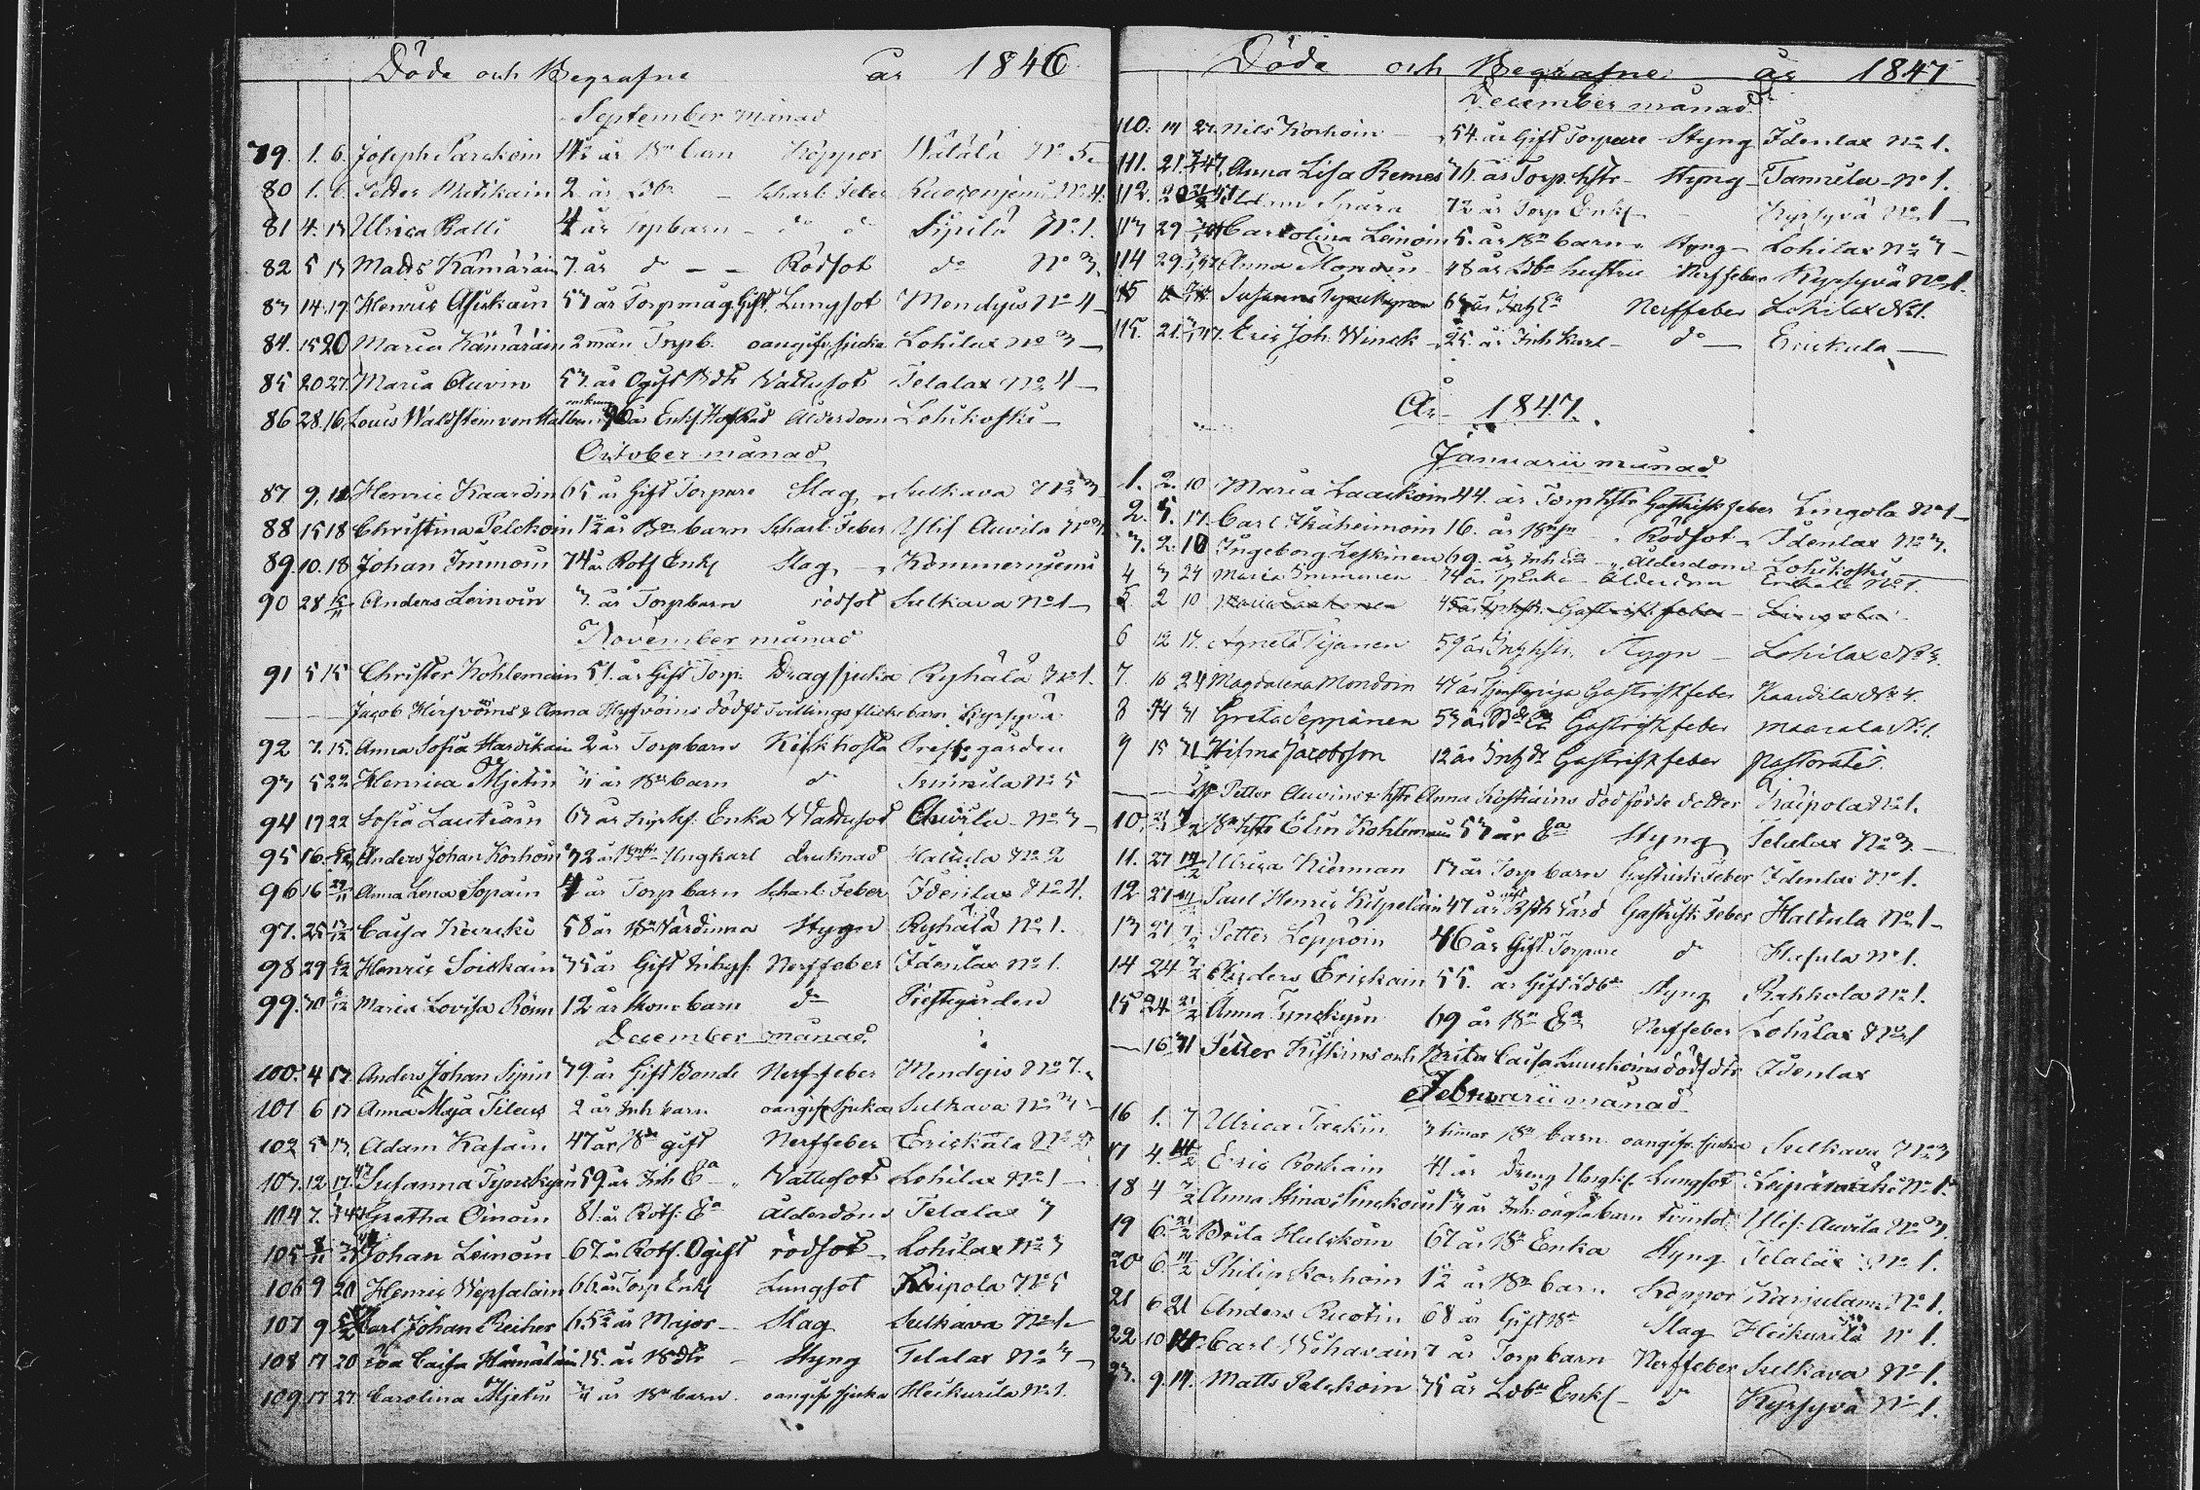 Döde och Begrafne år 1846
September månad
79. 1. 6. Joseph Parckoin 1½ år Bn barn Koppor Wätälä No 5
80 1. 6. Petter Matikain 2 år Ldbr Scharl: Feber No 4.
81 4. 13 Ulrica Ralli 4 år Torpbarn do do Sipilä No 1.
82 5 13 Matts Kämäräin 7. år do Rödsot do No 3.
83 14. 19 Henric Asikain 53 år Torpmåg Gift. Lungsot Mendyis No 4
84. 15 20 Maria Kämäräin 2 mån Torpb. oangifv: sjuka Lohilax No 3
85 20 27. Maria Auvin 53. år Ogift Bdtr Vattusot Telalax No 4
86 28. 16. Louis Waldstein von Halben år Enkl. Ålderdom Lohikoski
October månad
87 9. 11. Henric Kaardin 65 år Gift Torpare Slag Sulkava No 3
88 15 18 Christina Pelckoin 1½ år Bn barn Scharl: Feber Ylif Auvila No
89. 10. 18 Johan Immoin 74 år Rotf Enkl Slag Kammernjemi
90 28 Anders Leinoin 3. år Torpbarn rödsot Sulkava No 1
November månad
91 5 15 Christer Kohlemain 51. år Gift Torp. Dragsjuka Ryhälä No 1.
Jacob Hirfvöins & Anna Hirfvöins dödfd Tvillings flickebarn Kyrsyvä
92 7. 15. Anna Sofia Harvikain 2 år Torpbarn Kikhosta Prestegården
93 5 22 Henrica Mjetin ¾ år Bn barn do No 5
94 17 22 Sofia Lautiain 63 år Enka Wattusot Auvila No 3
95 16. Anders Johan Korhoin 32 år Ungkarl druknad Halttula No 2
96 16 29/11 Anna Lena Sopain 4 år Torpbarn Scharl: Feber Idenlax No 4.
97. 25 13/12 Caisa Kurcki 58 år Bn Värdinna Stygn Ryhälä No 1.
98 29 6/12 Henric Loickain 35 år Gift Inhys. Nerffeber Idenlax No 1.
99. 30 6/12 Maria Lovisa Rönn 12 år barn do Prestgården
December månad
100. 4 13 Anders Johan Sipin 39 år Gift Bonde Nerffeber Mendyis No 7.
101 6 13 Anna Maja Tileus 2 år Inh barn oangifv Sjuka Sulkava No 3
102 5 13. Adam Kafain 47 år Bn gift Nerffeber Erickala No
103. 12. 17. Susanna Tynckyn 59 år Inh Ea Vattusot Lohilax No 1
104 7. Gretha Oinoin 81. år Rotf: Ea Ålderdom Telalax 3
105 Johan Leinoin 67. år Rotf. Ogift rödsot Lohilax No 3
106 9 20 Henric Wepsäläin 66. år Torp Enkl Lungsot Kaipola No 5
107 9 Carl Johan Reiher 65½ år Major Slag Sulkava No 1
108 17 20 Eva Caisa Hämäläin 15. år Bdtr Styng Telalax No 3
109 17 27. Carolina Mjetin ¾ år Bn barn oangifv sjuka Heikurila No 1.
Döde och Begrafne år 1847
December månad
110. 14 27. Nils Korhoin 54. år Gift Torpare Styng Idenlax No 1.
111. 21. Anna Lisa Remes 36. år Torp. hstr Styng Tannila No 1.
112. 20 Snära 72 år Torp Enkl Kyrsyvä No 1
113 29 Carolina Leinoin 5. år Bn barn Styng Lohilax No 3
114 29. Anna 48 år Ldbr hustru Nerffeber Kyrsyvä No 1.
115 Susanna Tynckynen 6 år Inh Ea Nerffeber Lohilax No 1.
115. 21. Eric Joh: Winck 25. år Inh Karl do Erickala
År 1847.
Januarii månad
1. 2. 10 Maria Laackoin 44. år Torp hstr Gastriskfeber Lingola No 1
2. 5. 17 Carl Ikäheimoin 16. år Bnsn Rödsot Idenlax No 3.
3. 2. 10 Ingeborg Leskinen 69. år Inh Ea Ålderdom Lohikoski
4 3 24 Maria Immonen 74 år Tp Enka Ålderdom Erikala No 1.
5 2 10 Maria Laakonen 45 år Tp hstr Gastriskfeber Lingola
6 12 17. Agneta Tijanen 59 år Inh hstr. Stygn Lohilax No 3.
7. 16 24 Magdalena Mondoin 47 år Gastriskfeber Kaardila No 4.
8 14 31 Greta Seppänen 53 år Gastriskfeber Maarala No 1.
9 15 31 Hilma Jacobsson 12 år Inh dr Gastriskfeber Pastoratet.
Petter Auvins & hstr Anna Kostiains dödfödde dotter Kaipola No 1.
10. Bn hstr Elin Kohlemain 53 år Ea Styng Telalax No 3
11. 27 14/2 Ulrica Kiernan 13 år Torp barn Gastrisk: Feber Idenlax No 1.
12 21 Paul Henric Kilpeläin 47 år gift Gastrisk: Feber Halttula No 1
13 21 7/2 Petter Loppoin 46 år Gift Torpare do No 1.
14 24 7/2 Anders Erickain 55. år Gift Ldbr Styng Rahkola No 1.
15 24. 21/2 Anna Tynckyn 69 år Bn Ea Nerffeber Lohilax No 1
16 31 Petter Kiskins och Brita Caisa Luuckoins dödfdtr Idenlax
Februarii månad
16 1. 7 Ulrica Taskin 3 timar Bn barn oangifv. sjuka Sulkava No 3
17 4. 14/2 Eric Roskain 41 år Dreng Ungkl. Lungsot Leipämäki No 1.
18 4 7/2 Anna Stina Sinckoin år Inh: oägta barn Tvinsot Ylif: Auvila No 3.
19 6. 21/2 Brita Hulckoin 67 år Bn Enka Styng Telalax No 1.
20 6. 14/2 Philip Korhoin 1½ år Bn barn Koppor Karjulam No 1.
21 6 21 Anders Ruotin 68 år Gift Bn Slag Heikurila No 1.
22 10 14 Carl Wehavain 7 år Torp barn Nerffeber Sulkava No 1.
23. 9. 14. Matts Pelckoin 75 år Ldbr Enkl do Kyrsyvä No 1.